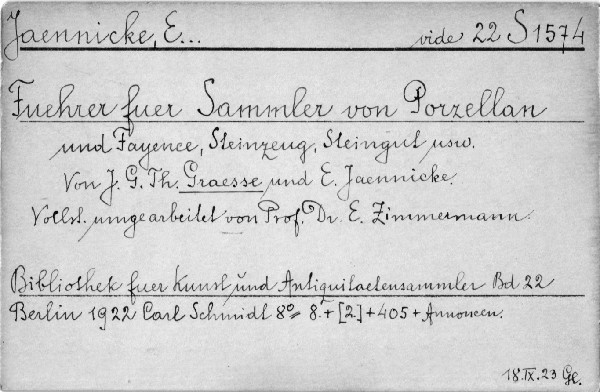 Jaennicke, E... vide 22 S 1574
Fuehrer fuer Sammler von Porzellan
und Fayence, Steinzeug, Steingut usw.
Von J. G. Th. Graesse und E. Jaennicke.
Vollst. umgearbeitet von Prof. Dr. E. Zimmermann.
Bibliothek fuer Kunst und Antiquitaetensammler Bd 22
Berlin 1922 Carl Schmidt 8º = 8.+[2]+405+Annoncen.
18.IX.23 Gl.